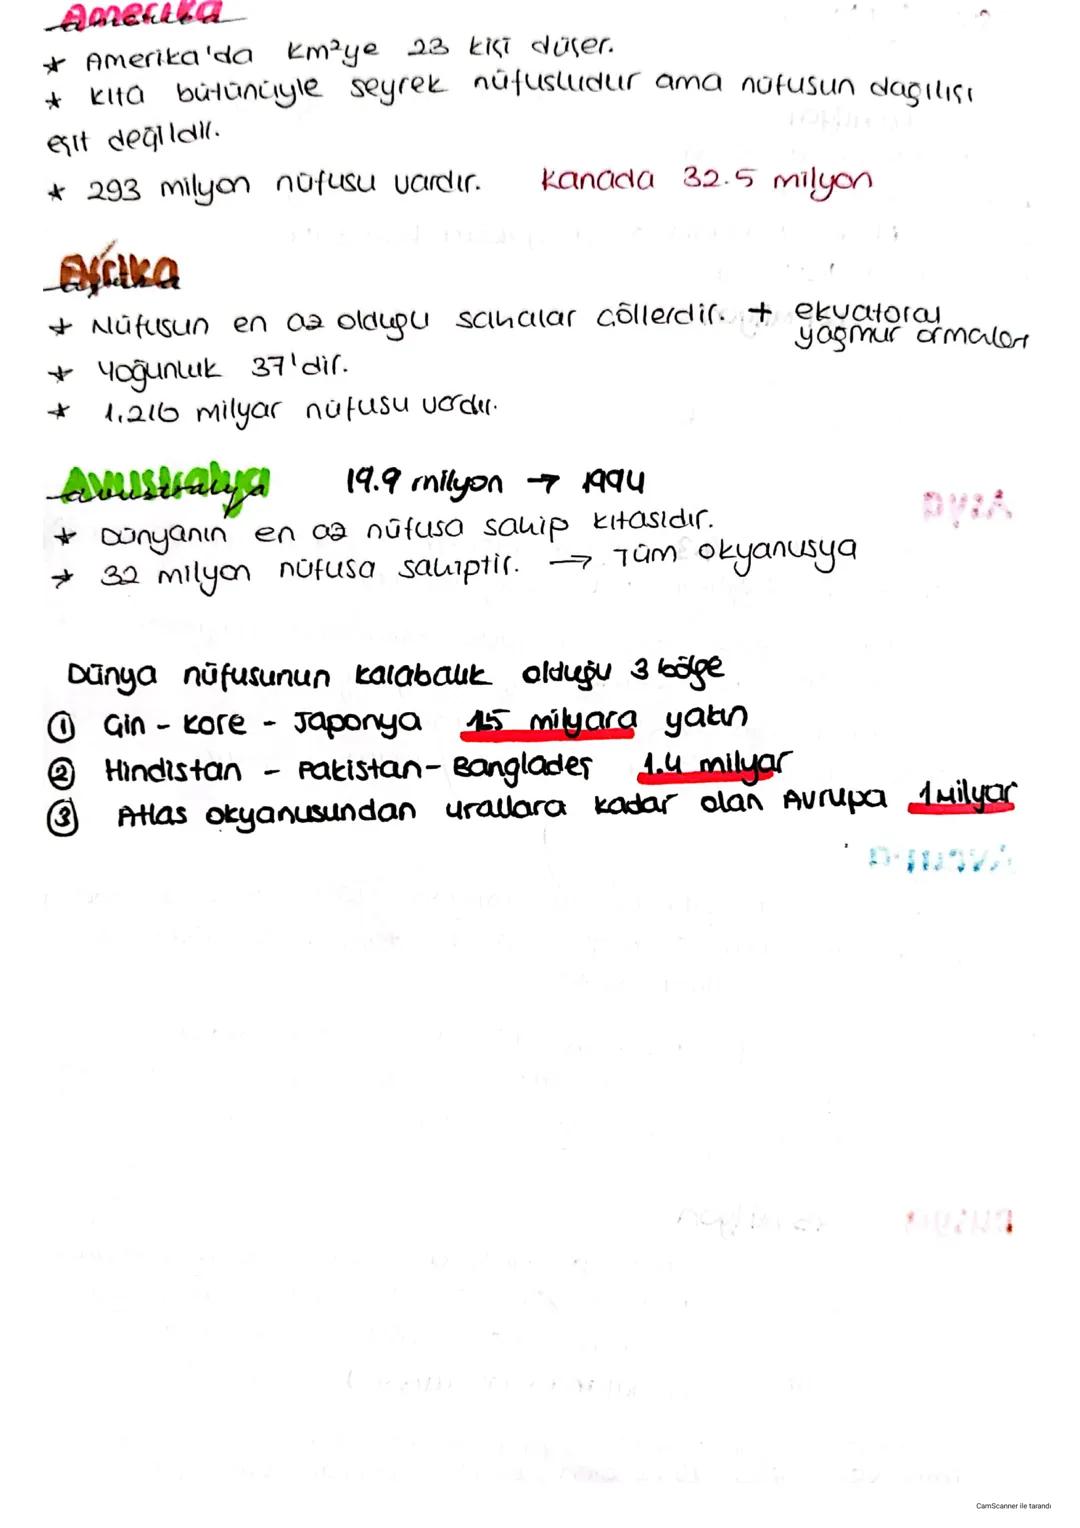 Amerika
* Amerika'da km²ye 23 kişi düşer.
* Kıta bütünüyle seyrek nüfusludur ama nüfusun dağılışı
eşit değildir.
* 293 milyon nüfusu vardır. Kanada 32.5 milyon
Afrika
* Nüfusun en az olduğu sahalar çöllerdir. + ekvatoral
yağmur ormanları
* Yoğunluk 37'dir.
* 1.216 milyar nüfusu vardır.
Avustralya 19.9 milyon → 1994
* Dünyanın en az nüfusa sahip kıtasıdır.
* 32 milyon nüfusa sahiptir. → Tüm okyanusya
Dünya nüfusunun kalabalık olduğu 3 bölge
① Çin - Kore - Japonya 1.5 milyara yakın
② Hindistan - Pakistan - Bangladeş 1.4 milyar
③ Atlas okyanusundan urallara kadar olan Avrupa 1 milyar
CamScanner ile tarandı